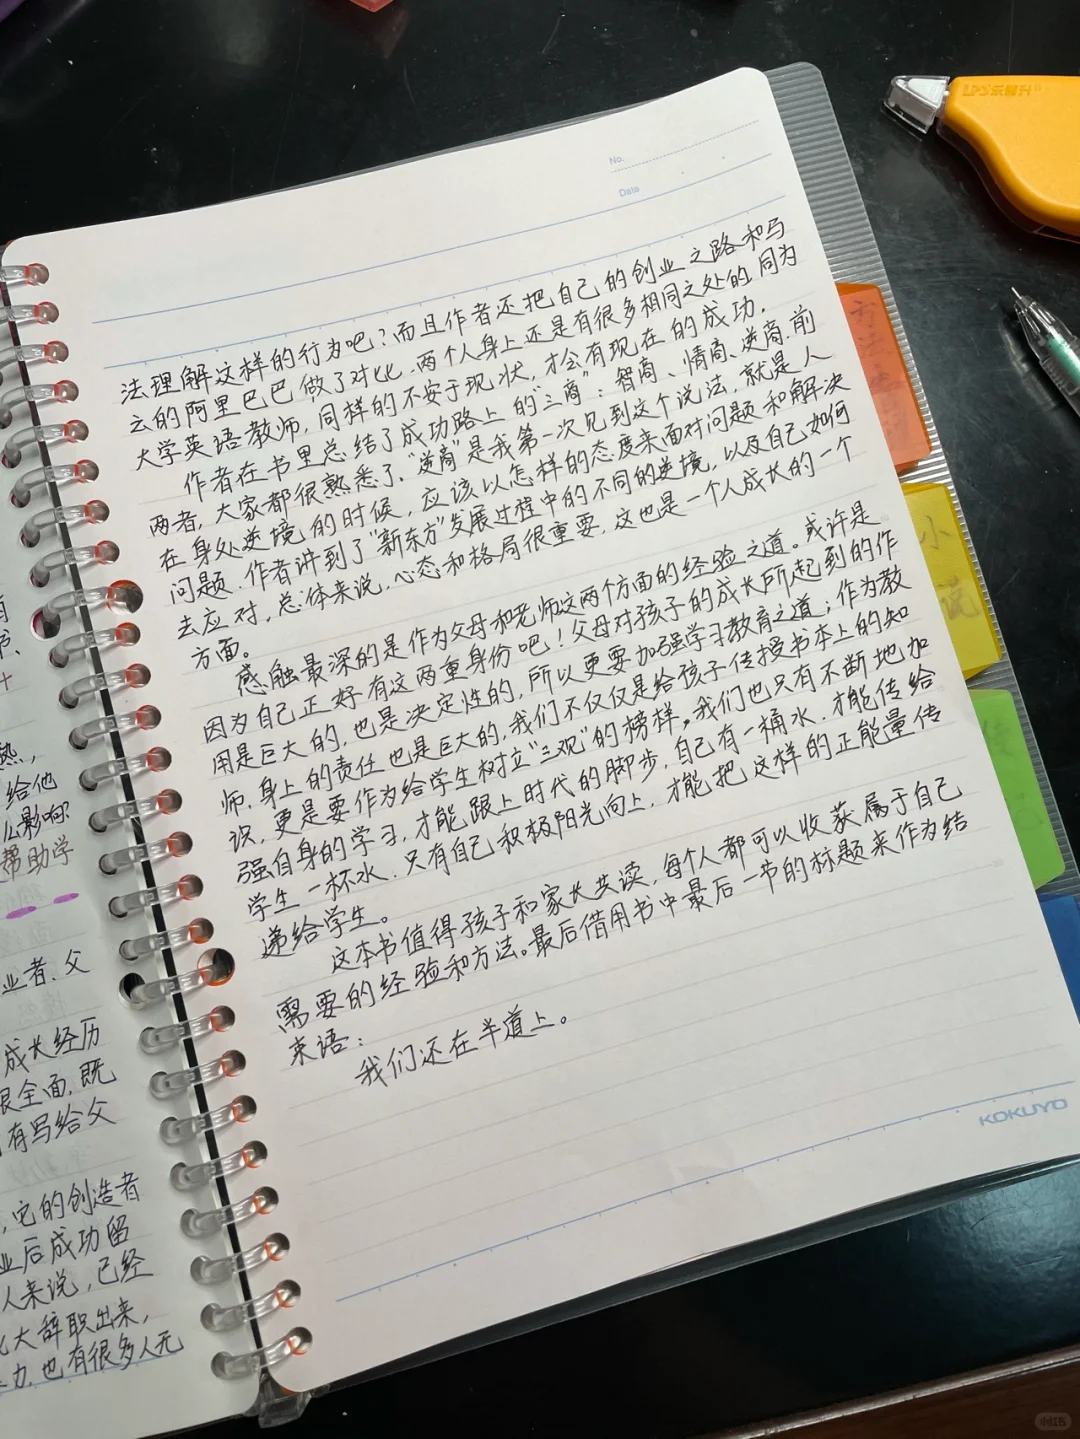 No.
Date
法理解这样的行为吧？而且作者还把自己的创业之路和马
云的阿里巴巴做了对比，两个人身上还是有很多相同之处的，同为
大学英语教师，同样的不安于现状，才会有现在的成功。
作者在书里总结了成功路上的"三商"：智商、情商、逆商，前
两者，大家都很熟悉了，"逆商"是我第一次见到这个说法，就是人
在身处逆境的时候，应该以怎样的态度来面对问题和解决
问题，作者讲到了"新东方"发展过程中的不同的逆境，以及自己如何
去应对，总体来说，心态和格局很重要，这也是一个人成长的一个
方面。
感触最深的是作为父母和老师这两个方面的经验之道。或许是
因为自己正好有这两重身份吧！父母对孩子的成长所起到的作
用是巨大的，也是决定性的，所以更要加强学习教育之道；作为教
师，身上的责任也是巨大的，我们不仅仅是给孩子传授书本上的知
识，更是要作为给学生树立"三观"的榜样。我们也只有不断地加
强自身的学习，才能跟上时代的脚步，自己有一桶水，才能传给
学生一杯水，只有自己积极阳光向上，才能把这样的正能量传
递给学生。
这本书值得孩子和家长共读，每个人都可以收获属于自己
需要的经验和方法。最后借用书中最后一节的标题来作为结
束语：
我们还在半道上。
KOKUYO
热，
给他
么影响？
帮助学
业者、父
成长经历
很全面，既
有写给父
，它的创造者
业后成功留
人来说，已经
北大辞职出来，
力，也有很多人无
小
说